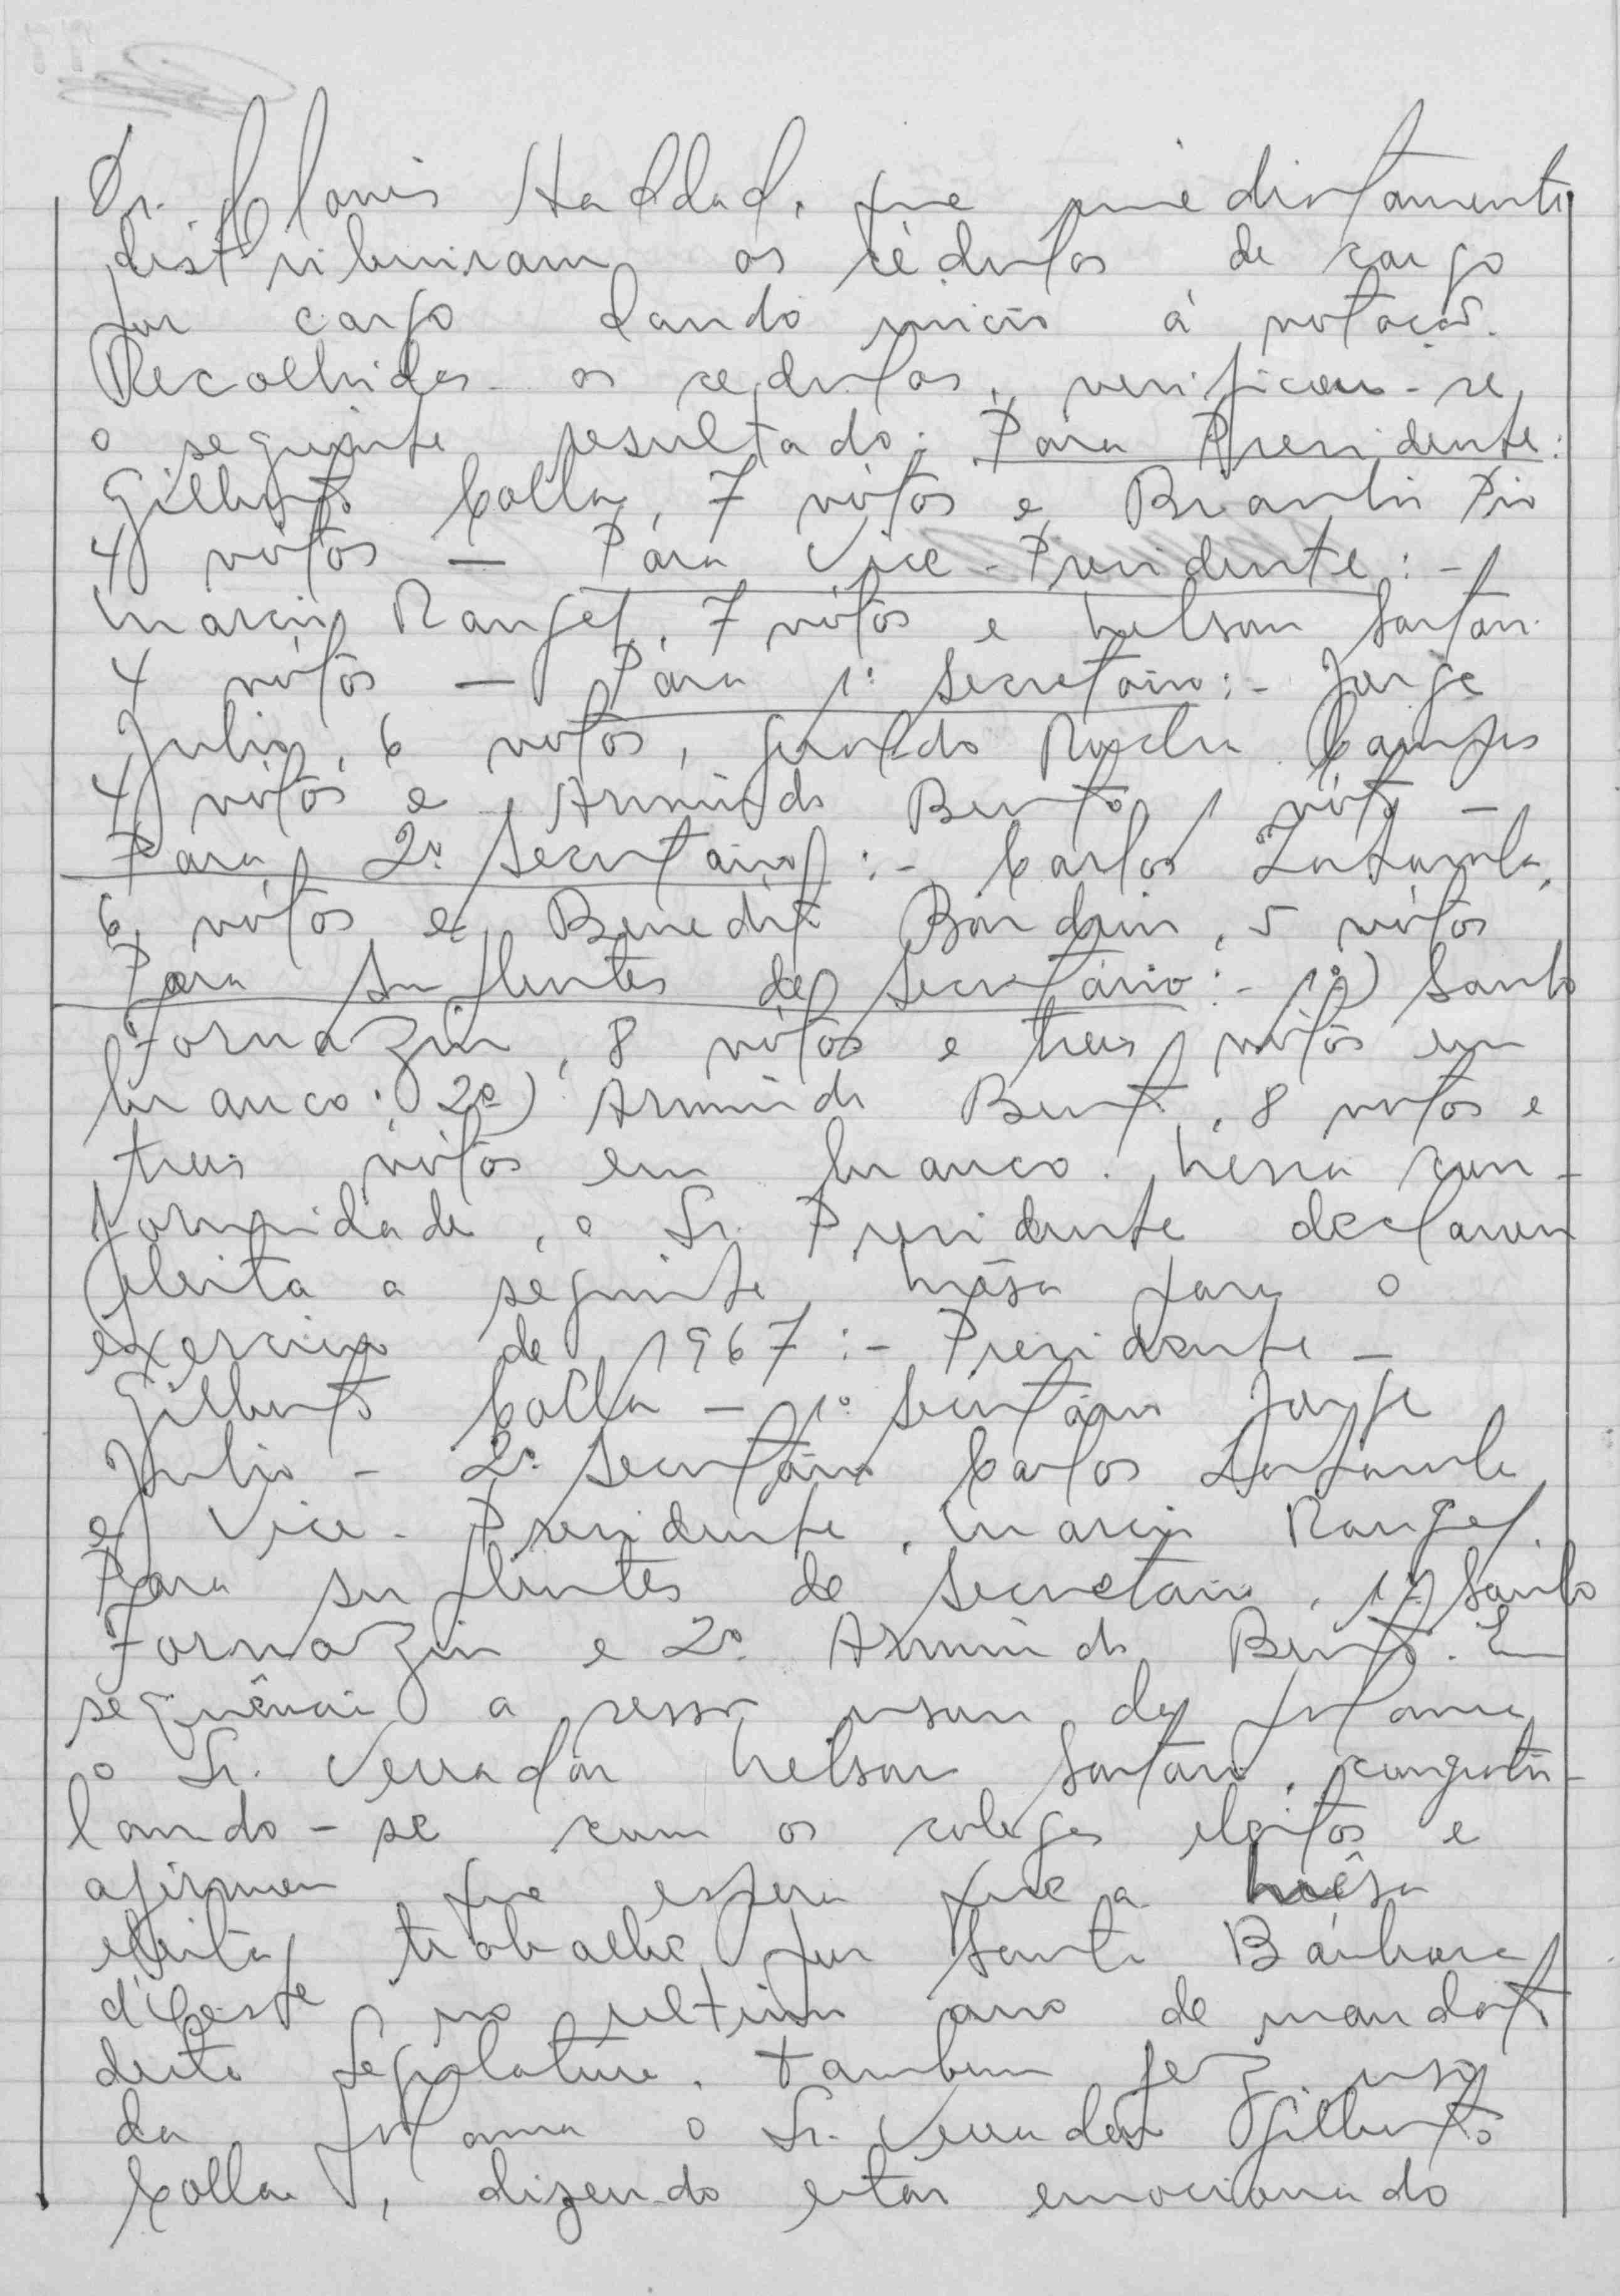 Dr. Clovis Haddad, que imediatamente
distribuiram as cédulas de cargo
por cargo dando inicio á votação.
Recolhidas as cedulas, verificou-se
o seguinte resultado: Para Presidente:
Gilberto Colla, 7 vótos e Braulio Pio
4 vótos — Para Vice-Presidente:-
Marcio Rangel, 7 vótos e Nelson Santari
4 vótos — Para 1º Secretario:- Jorge
Julio, 6 votos, Geraldo Rocha Campos
4 vótos e Armindo Bento 1 vóto —
Para 2º Secretário:- Carlos
6 vótos e Benedito, 5 vótos
Para suplentes de Secretário:- 1º) Santo
Fornazin, 8 vótos e tres vótos em
branco; 2º) Armindo Bento, 8 votos e
tres vótos em branco. Nessa con-
formidade, o Sr. Presidente declarou
eleita a seguinte Mêsa para o
exercicio de 1967:- Presidente —
Gilberto Colla — 1º Secretário Jorge
Julio - 2º Secretário Carlos
e Vice-Presidente, Marcio Rangel.
Para suplentes de Secretario, 1º Santo
Fornazin e 2º Armindo Bento. Em
seguência a usou da palavra
o Sr. Vereador Nelson, congratu-
lando-se com os colegas eleitos e
afirmou que espera que a Mêsa
eleita trabalhe por Santa Bárbara
d'Oeste no ultimo ano de mandato
desta Legislatura. Tambem fez uso
da palavra o Sr. Vereador Gilberto
Colla, dizendo estar emocionado